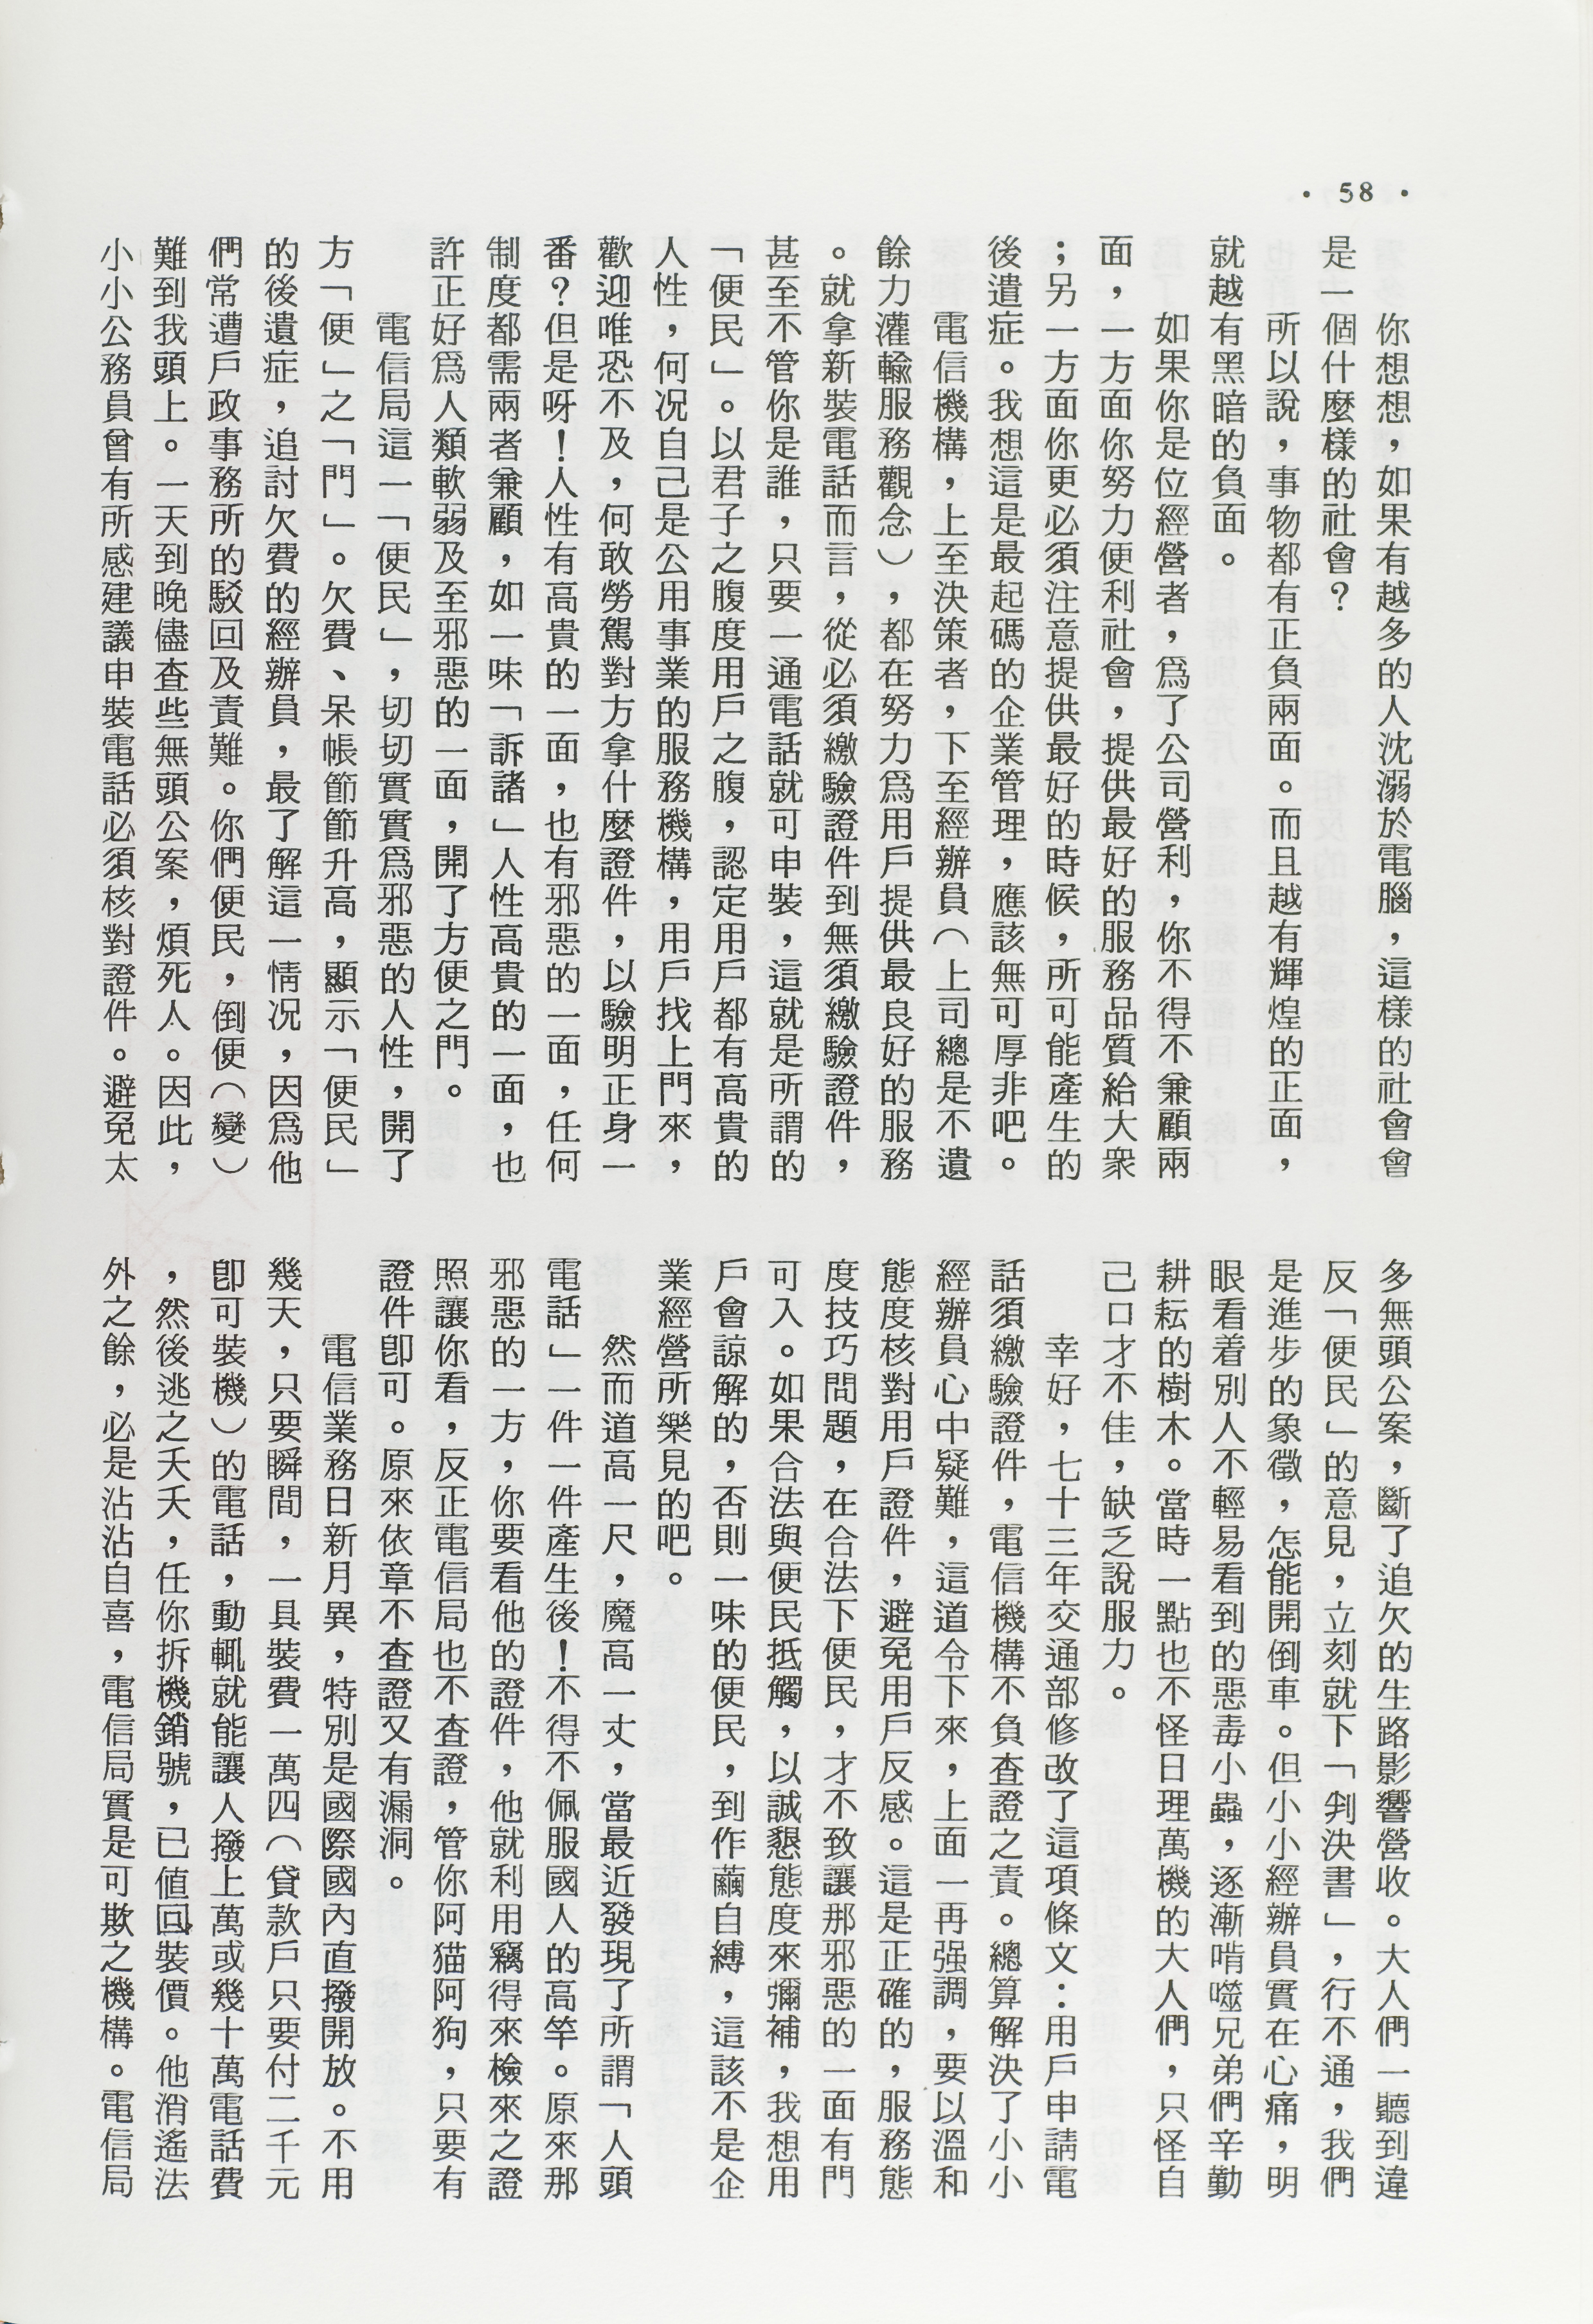 · 58 ·
你想想，如果有越多的人沈溺於電腦，這樣的社會會
是一個什麼樣的社會？
所以說，事物都有正負兩面。而且越有輝煌的正面，
就越有黑暗的負面。
如果你是位經營者，爲了公司營利，你不得不兼顧兩
面，一方面你努力便利社會，提供最好的服務品質給大衆
；另一方面你更必須注意提供最好的時候，所可能產生的
後遺症。我想這是最起碼的企業管理，應該無可厚非吧。
電信機構，上至決策者，下至經辦員（上司總是不遺
餘力灌輸服務觀念），都在努力爲用戶提供最良好的服務
。就拿新裝電話而言，從必須繳驗證件到無須繳驗證件，
甚至不管你是誰，只要一通電話就可申裝，這就是所謂的
「便民」。以君子之腹度用戶之腹，認定用戶都有高貴的
人性，何況自己是公用事業的服務機構，用戶找上門來，
歡迎唯恐不及，何敢勞駕對方拿什麼證件，以驗明正身一
番？但是呀！人性有高貴的一面，也有邪惡的一面，任何
制度都需兩者兼顧，如一味「訴諸」人性高貴的一面，也
許正好爲人類軟弱及至邪惡的一面，開了方便之門。
電信局這一「便民」，切切實實爲邪惡的人性，開了
方「便」之「門」。欠費、呆帳節節升高，顯示「便民」
的後遺症，追討欠費的經辦員，最了解這一情況，因爲他
們常遭戶政事務所的駁回及責難。你們便民，倒便（變）
難到我頭上。一天到晚儘查些無頭公案，煩死人。因此，
小小公務員曾有所感建議申裝電話必須核對證件。避免太
多無頭公案，斷了追欠的生路影響營收。大人們一聽到違
反「便民」的意見，立刻就下「判決書」，行不通，我們
是進步的象徵，怎能開倒車。但小小經辦員實在心痛，明
眼看着別人不輕易看到的惡毒小蟲，逐漸啃噬兄弟們辛勤
耕耘的樹木。當時一點也不怪日理萬機的大人們，只怪自
己口才不佳，缺乏說服力。
幸好，七十三年交通部修改了這項條文：用戶申請電
話須繳驗證件，電信機構不負查證之責。總算解決了小小
經辦員心中疑難，這道令下來，上面一再强調，要以溫和
態度核對用戶證件，避免用戶反感。這是正確的，服務態
度技巧問題，在合法下便民，才不致讓那邪惡的一面有門
可入。如果合法與便民抵觸，以誠懇態度來彌補，我想用
戶會諒解的，否則一味的便民，到作繭自縛，這該不是企
業經營所樂見的吧。
然而道高一尺，魔高一丈，當最近發現了所謂「人頭
電話」一件一件產生後！不得不佩服國人的高竿。原來那
邪惡的一方，你要看他的證件，他就利用竊得來檢來之證
照讓你看，反正電信局也不查證，管你阿猫阿狗，只要有
證件卽可。原來依章不查證又有漏洞。
電信業務日新月異，特別是國際國內直撥開放。不用
幾天，只要瞬間，一具裝費一萬四（貸款戶只要付二千元
卽可裝機）的電話，動輒就能讓人撥上萬或幾十萬電話費
，然後逃之夭夭，任你拆機銷號，已值回裝價。他消遙法
外之餘，必是沾沾自喜，電信局實是可欺之機構。電信局